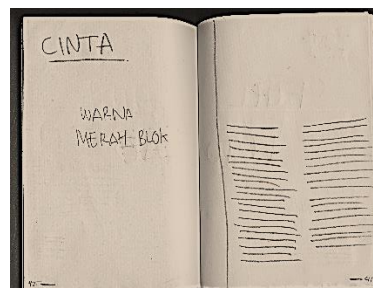 CINTA
WARNA
MERAH BLOK